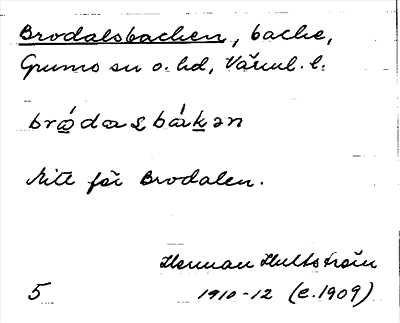 Brodalsbacken, backe,
Grums sn o. hd, Värml. l.
brǫ́dasbákən
Mitt för Brodalen.
Herman Hultström
5 1910-12 (c. 1909)